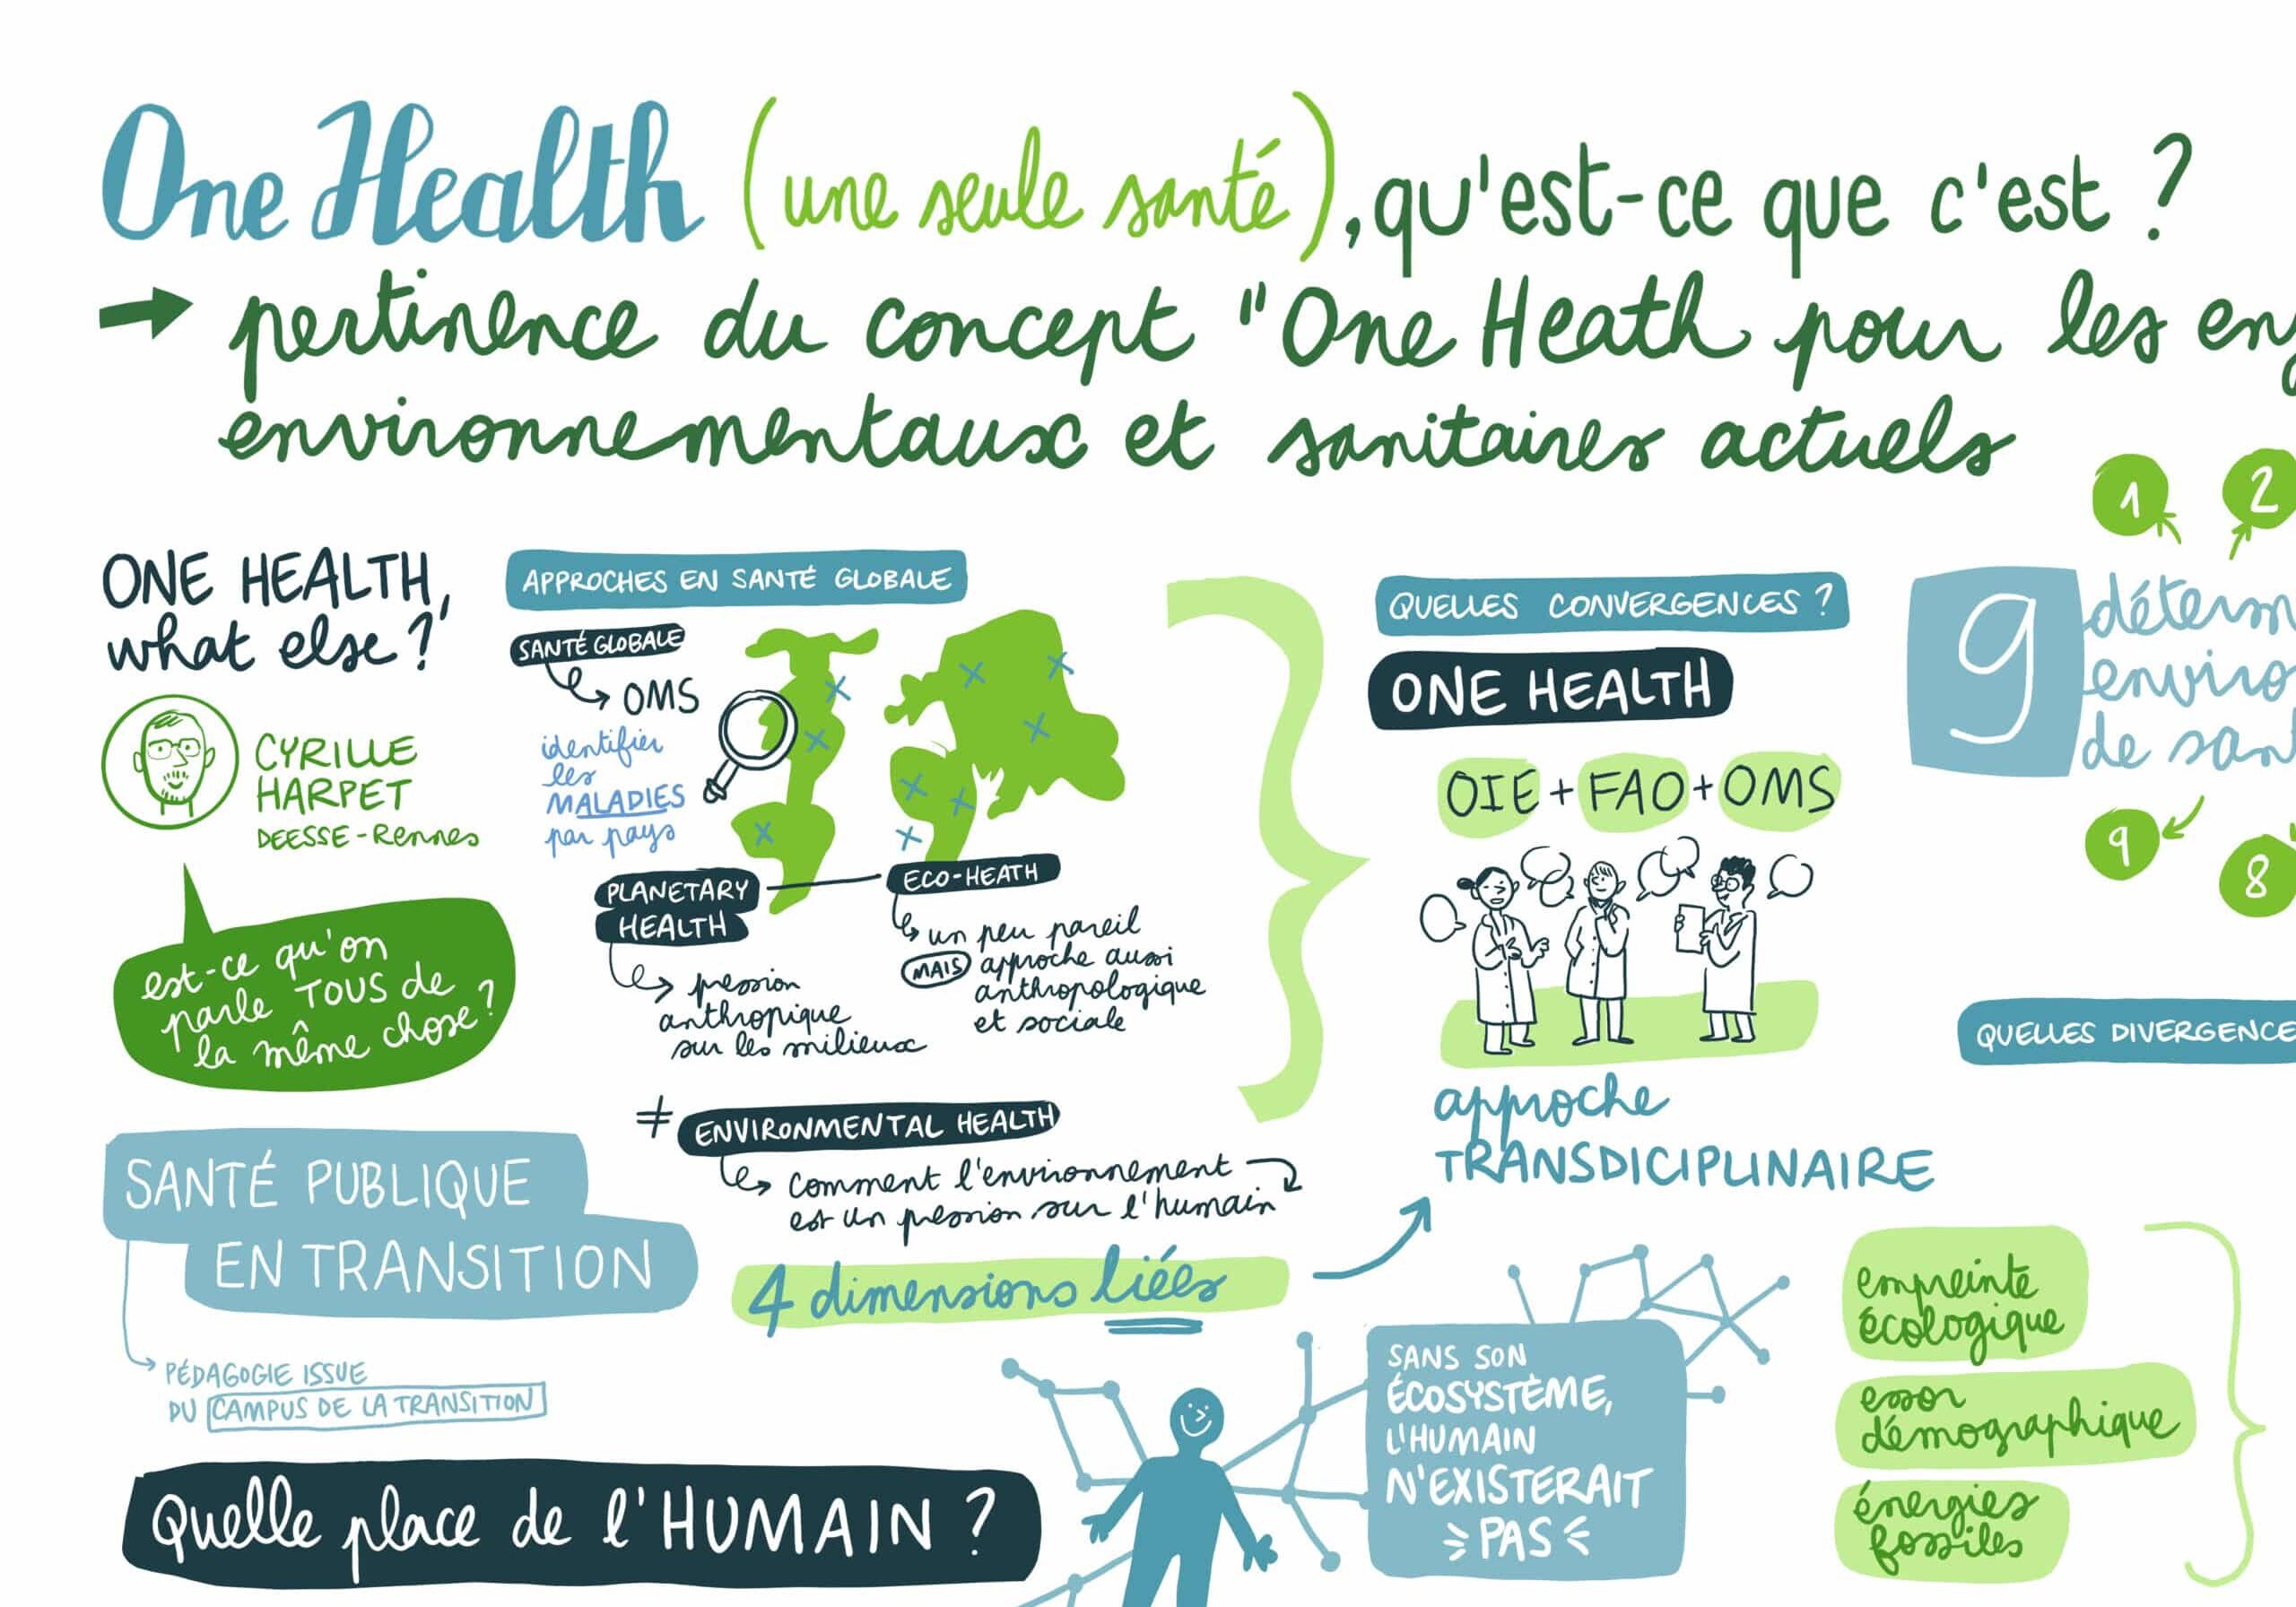 One Health (une seule santé), qu'est-ce que c'est ?
→ pertinence du concept "One Heath pour les
environnementaux et sanitaires actuels
ONE HEALTH,
what else ?
CYRILLE
HARPET
DEESSE-Rennes
est-ce qu'on
parle TOUS de
la même chose ?
SANTÉ PUBLIQUE
EN TRANSITION
PÉDAGOGIE ISSUE
DU CAMPUS DE LA TRANSITION
Quelle place de l'HUMAIN ?
APPROCHES EN SANTÉ GLOBALE
SANTÉ GLOBALE
OMS
identifier
les
MALADIES
par pays
PLANETARY
HEALTH
pression
anthropique
sur les milieux
ECO-HEATH
un peu pareil
MAIS approche aussi
anthropologique
et sociale
≠ ENVIRONMENTAL HEALTH
comment l'environnement
est un pression sur l'humain
4 dimensions liées
QUELLES CONVERGENCES ?
ONE HEALTH
OIE + FAO + OMS
approche
TRANSDICIPLINAIRE
SANS SON
ÉCOSYSTÈME,
L'HUMAIN
N'EXISTERAIT
PAS
1
2
9
de
9
8
QUELLES DIVERGENCE
empreinte
écologique
essor
démographique
énergies
fossiles